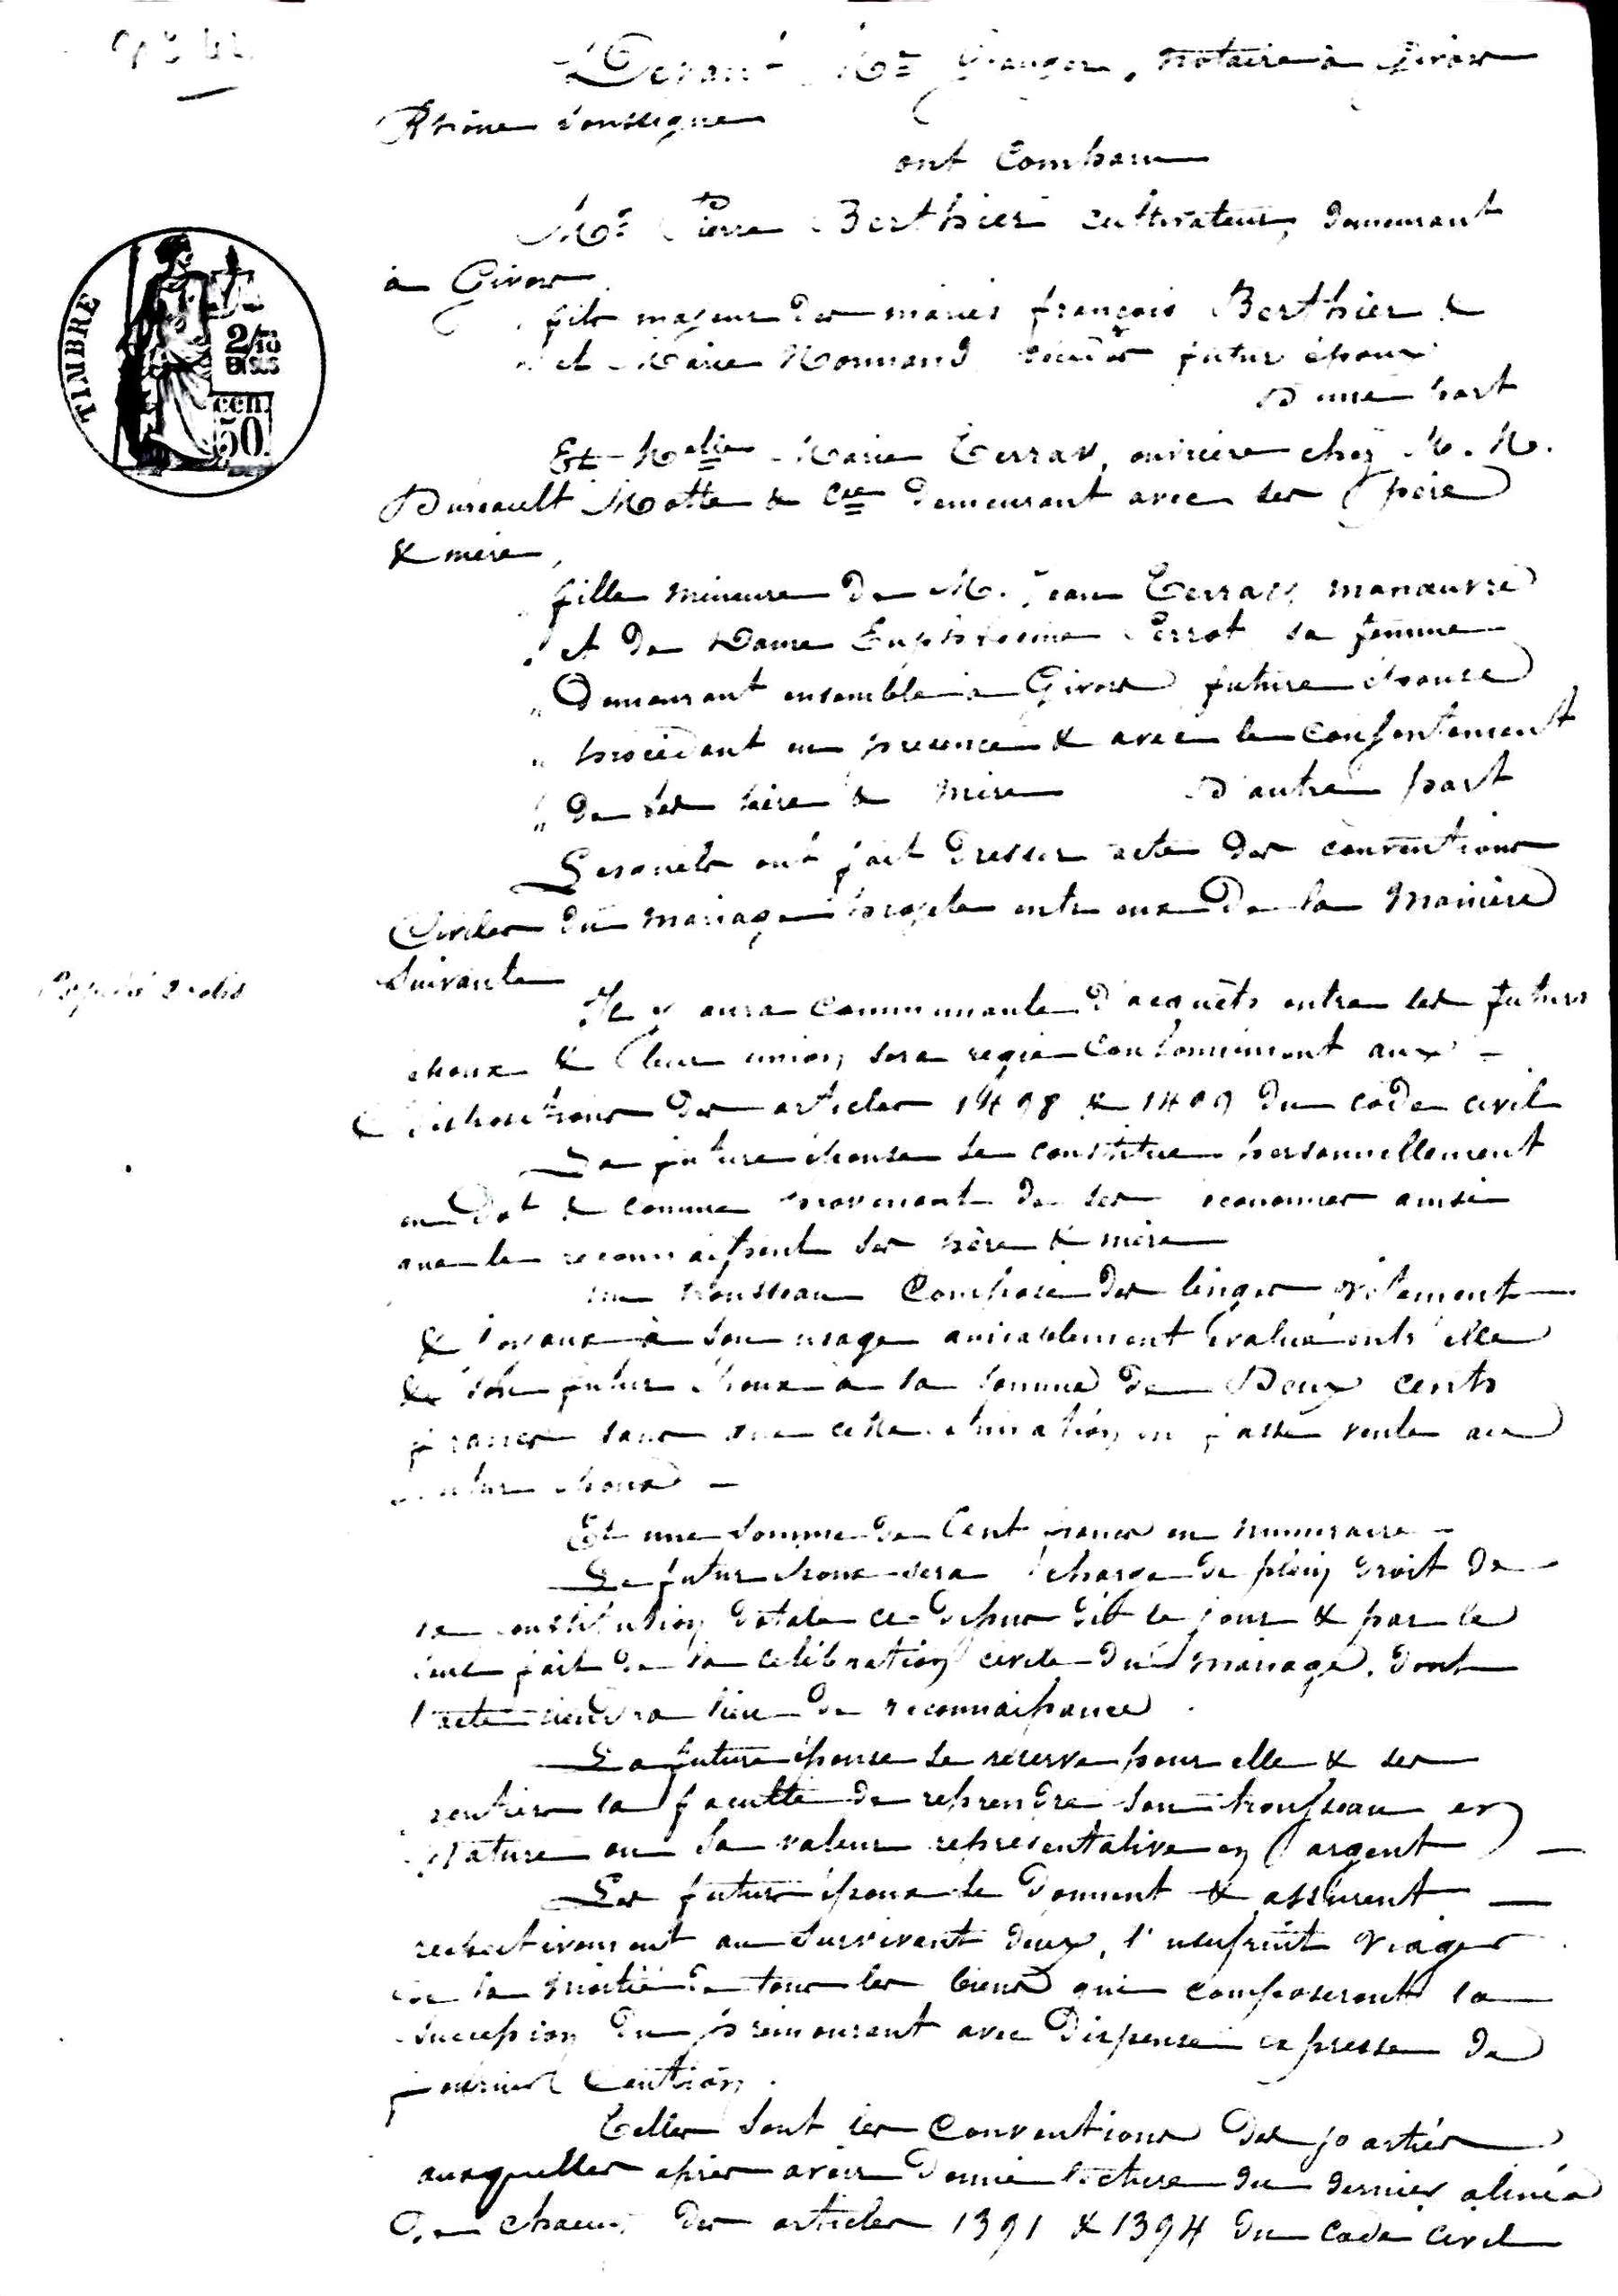 Devant Me Granger, notaire à Givors
Rhône soussigné
ont Comparu
Mr Pierre Berthier cultivateur, demeurant
à Givors
fils majeur des mariés françois Berthier &
et Marie Normand futur époux
D'une part
Et Melle Marie Terray, ouvrière chez M. M.
Motte & Cie demeurant avec ses père
& mère,
fille mineure de M. jean Terray, manœuvre
et de Dame Euphrosine Perrot sa femme
Demeurant ensemble à Givors future épouse
procédant en présence & avec le consentement
de ses père & mère D'autre part
Lesquels ont fait dresser acte des conventions
Civiles du mariage projeté entre eux De la Manière
suivante
Expédié 2 rôles
Il y aura communauté D'acquêts entre les futurs
époux & leur union sera régie Conformément aux
Dispositions des articles 1498 & 1499 du code civil
La future épouse se constitue personnellement
en Dot & comme provenant de ses économies ainsi
que le reconnaissent ses père & mère
un trousseau Composé des linges vêtements
& joyaux à son usage amicalement évalué entr'elle
& son futur époux à la somme de Deux cents
francs sans que cette estimation en fasse vente au
futur époux
Et une somme de Cent francs en numéraire
Le futur époux sera chargé de plein droit de
la constitution dotale ci-dessus dès le jour & par le
seul fait de la célébration civile du mariage, dont
l'acte tiendra lieu de reconnaissance
La future épouse se réserve pour elle & ses
héritiers la faculté de reprendre son trousseau en
Nature ou sa valeur représentative en argent
Les futurs époux se Donnent & assurent
respectivement au survivant d'eux, l'usufruit viager
de la moitié de tous les biens qui composeront la
succession du prémourant avec Dispense expresse de
fournir Caution.
Telles sont les Conventions des parties
auxquelles après avoir Donné lecture du dernier alinéa
De chacun des articles 1391 & 1394 du Code Civil
TIMBRE
2/10
EN SUS
50 cen.